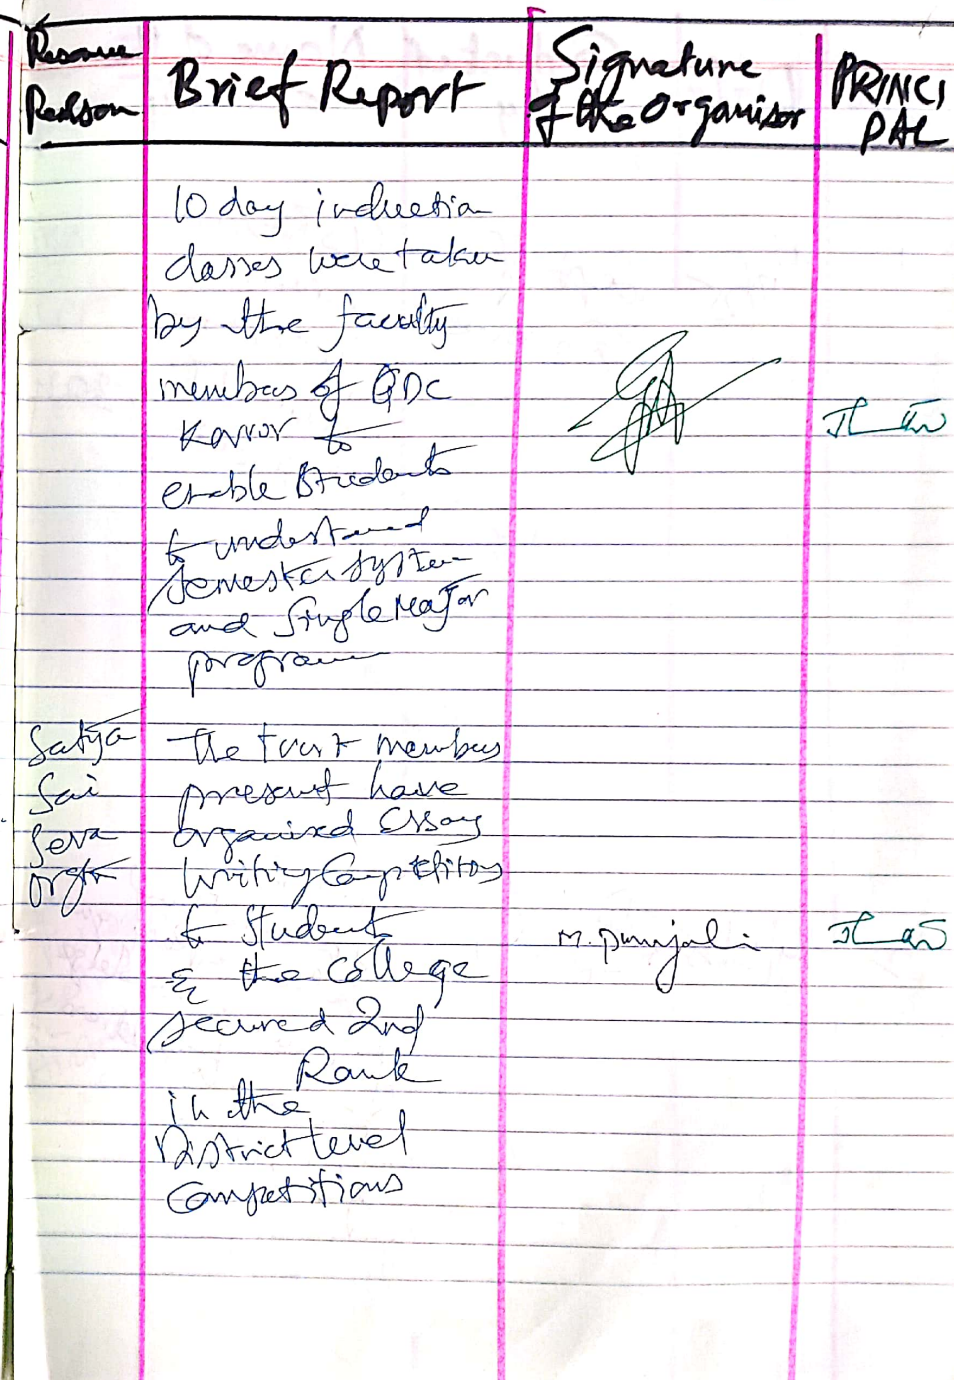 Resource Person
Brief Report
Signature of the Organisor
PRINCI PAL
10 day induction
classes were taken
by the faculty
members of GDC
Kovvor to
enable Students
to understand
Semester system
and Single Major
program
Satya
Sai
Seva
orgn
The trust members
present have
organised Essay
Writing Competitions
to Students
& the College
secured 2nd
Rank
in the
District level
Competitions
M. Punjali